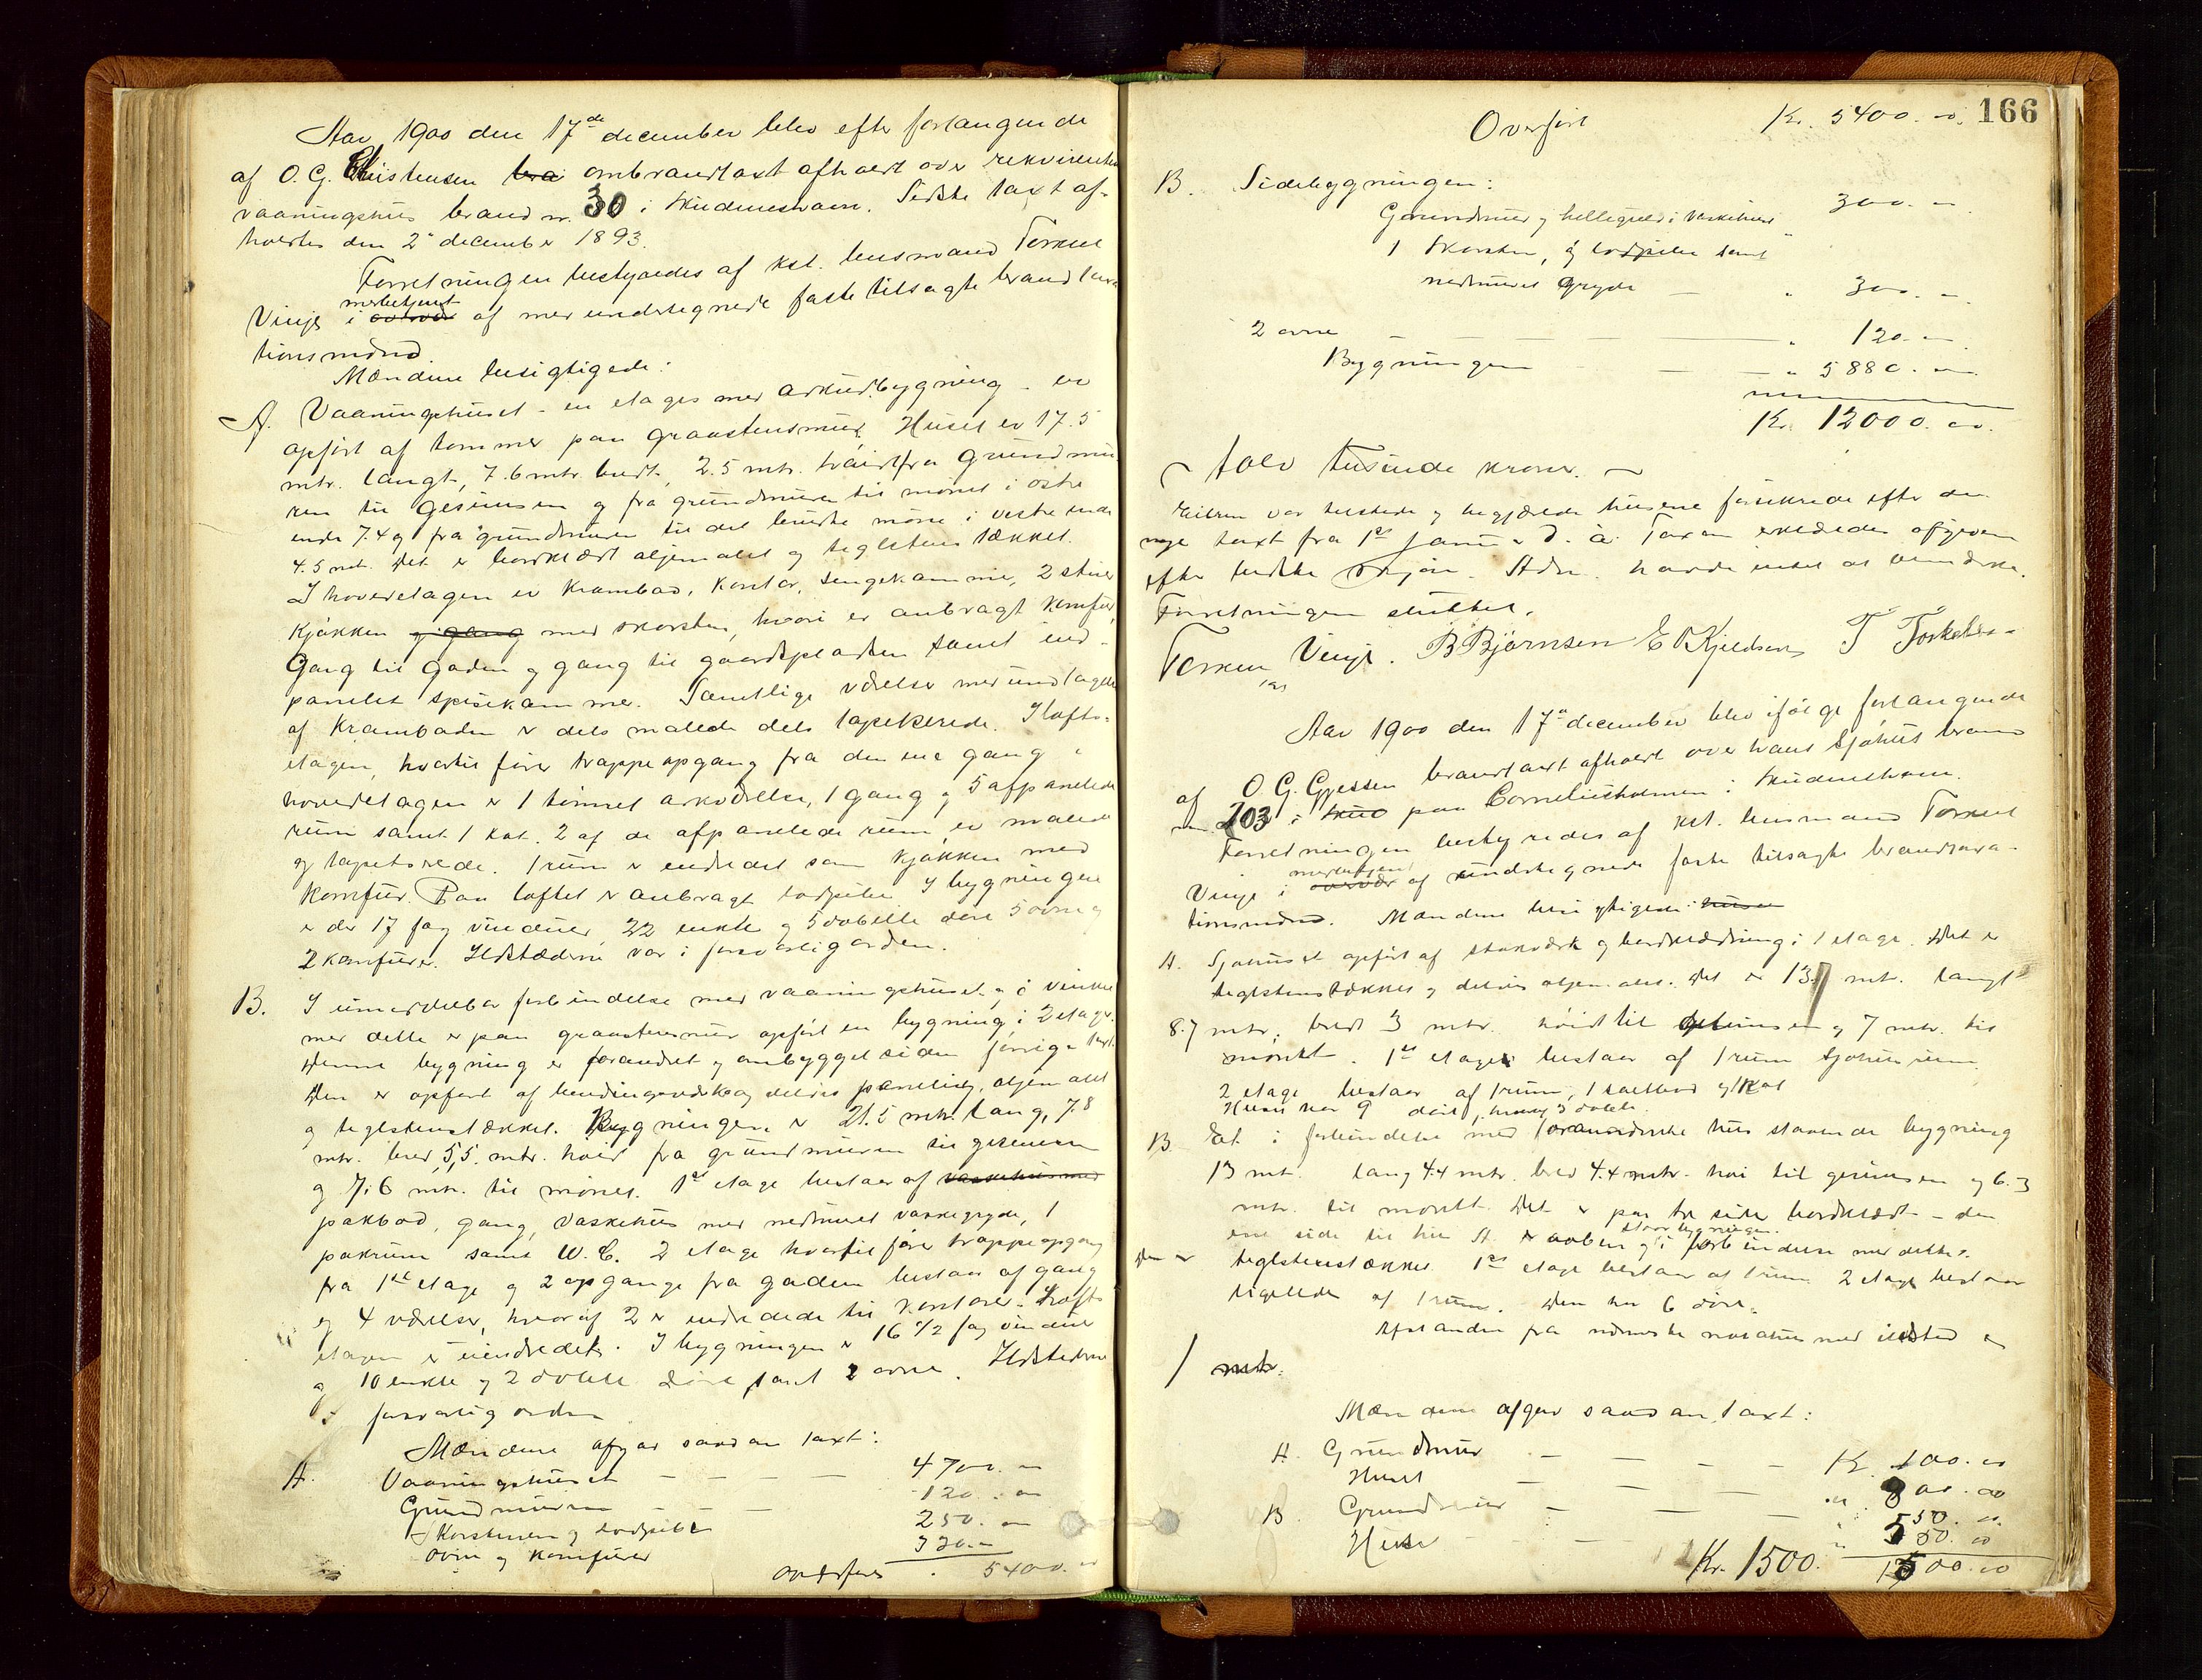 Aar 1900 den 17de december blev efter forlangende
af O. G. Christensen bra ombrandtaxt afholdt over rekvirentens
vaaningshus brand nr. 30 i Skudeneshavn. Sidste taxt af-
holdtes den 2. december 1893.
Forretningen bestyredes af kst. lensmand Torkel
Vinje i overvær medbetjent af med undertegnede faste tilsagte brandtaxa
tionsmænd.
Mændene besigtigede:
A. Vaaningshuset - en etages med arkudbygning - er
opført af tømmer paa graastensmur. Huset er 17.5
mtr. langt, 7.6 mtr. bredt, 2.5 mtr. høidt fra grundmu-
ren til gesimsen og fra grundmuren til mønet i østre
ende 7.4 og fra grundmuren til det brudte møne i vestre ende
4.5 mtr. Det er bordklædt oljemalet og teglstenstækket.
I hovedetagen er krambod, kontor, sengekammer, 2 stuer
kjøkken og gang med skorsten, hvori er anbragt komfur,
Gang til gaden og gang til gaardspladsen samt ind-
panelet spisekammer. Samtlige værelser med undtagelse
af kramboden er dels malede dels tapetserede. I lofts-
etagen, hvortil fører trappeopgang fra den ene gang i
hovedetagen er 1 tømret arkværelse, 1 gang og 5 afpanelede
rum samt 1 kot. 2 af de afpanelede rum er malede
og tapetserede. 1 rum er indredet som kjøkken med
komfur. Paa loftet er anbragt sodpibe. I bygningen
er der 17 fag vinduer, 22 enkle og 5 dobelte døre 5 ovne og
2 komfurer. Ildstæderne var i forsvarlig orden.
B. I umiddelbar forbindelse med vaaningshuset og i vinkel
med dette er paa graastensmur opført en bygning i 2 etager.
Denne bygning er forandret og ombygget siden forrige taxt.
Den er opført af bindingsværk og delvis paneling, oljemalet
og teglstenstækket. Bygningen er 21.5 mtr. lang, 7.8
mtr. bred 5,5. mtr. høid fra grundmuren til gesimsen
og 7,6 mtr. til mønet. 1ste etage bestaar af vaskehus med
pakbod, gang, vaskehus med nedmuret vaskegryde, 1
pakrum samt W.C. 2 etage hvortil fører trappeopgang
fra 1ste etage og 2 opgange fra gaden bestaar af gang
og 4 værelser, hvoraf 2 er indredede til kontorer. Lofts
etagen er uindredet. I bygningen er 16 1/2 fag vinduer
og 10 enkle og 2 dobelte døre samt 2 ovne. Ildstederne
i forsvarlig orden
Mændene afgav saadan taxt:
A. Vaaningshuset - - - - 4700. -
Grundmuren - - - 120. -
Skorstenen og sodpibe 250. -
Ovne og komfurer 330. -
Overføres . 5400. -
166
Overført Kr. 5400. -
B. Sidebygningen:
Grundmur og hellegulv i vaskehuset 300. -
1 skorsten, og sodpibe samt
nedmuret gryde - " 300. -
2 ovne - - - - " 120. -
Bygningen - - - " 5880. -
Kr. 12000. -
- tolv tusinde kroner. -
Eieren var tilstede og begjærede husene forsikrede efter den
nye taxt fra 1ste januar d. å. Taxten erklæredes afgiven
efter bedste skjøn. Adr. havde intet at bemærke.
Forretningen sluttet.
Torkel Vinje. B Bjørnsen E Kjeldsen T Torkelsen
kst
Aar 1900 den 17de december blev ifølge forlangende
af O. G. Gjessen brandtaxt afholdt over hans sjøhus brand
nr. 203 i Skud paa Corneliusholmen i Skudeneshavn.
Forretningen bestyredes af kst. lensmand Torkel
Vinje i overvær medbetjent af undertegnede faste tilsagte brandtaxa-
tionsmænd. Mændene besigtigede: husen
A. Sjøhuset opført af stokværk og bordklædning i 1 etage. Det er
teglstenstækket og delvis oljemalet. Det er 13.7 mtr. langt
8.7 mtr. bredt 3 mtr. høidt til gesimsen og 7 mtr. til
mønet. 1ste etage bestaar af 1 rum sjøhusrum.
2 etage bestaar af 1 rum, 1 saltbod og 1 kot
Huset har 9 døre, hvoraf 3 dobelt.
B. Et i forbindelse med forannævnte hus staaende bygning
13 mtr. lang 4.4 mtr. bred 4.4 mtr. høi til gesimsen og 6.3
mtr. til mønet. Det er paa tre sider bordklædt - den
ene side til hus A. er aaben og i staar bygningen forbindelse med dette.
Den er teglstenstækket. 1ste etage bestaar af 1 rum. 2 etage bestaar
ligeledes af 1 rum. Den har 6 døre.
Afstanden fra nærmeste nabohus med ildsted er
1 mtr.
Mændene afgav saadan taxt:
A. Grundmur - - - - Kr. 100. 00
Huset - - - " 800. 00
B. Grundmur - - - " 50. 00
Huset - - - " 550. 00
Kr. 1500. 1500. 00